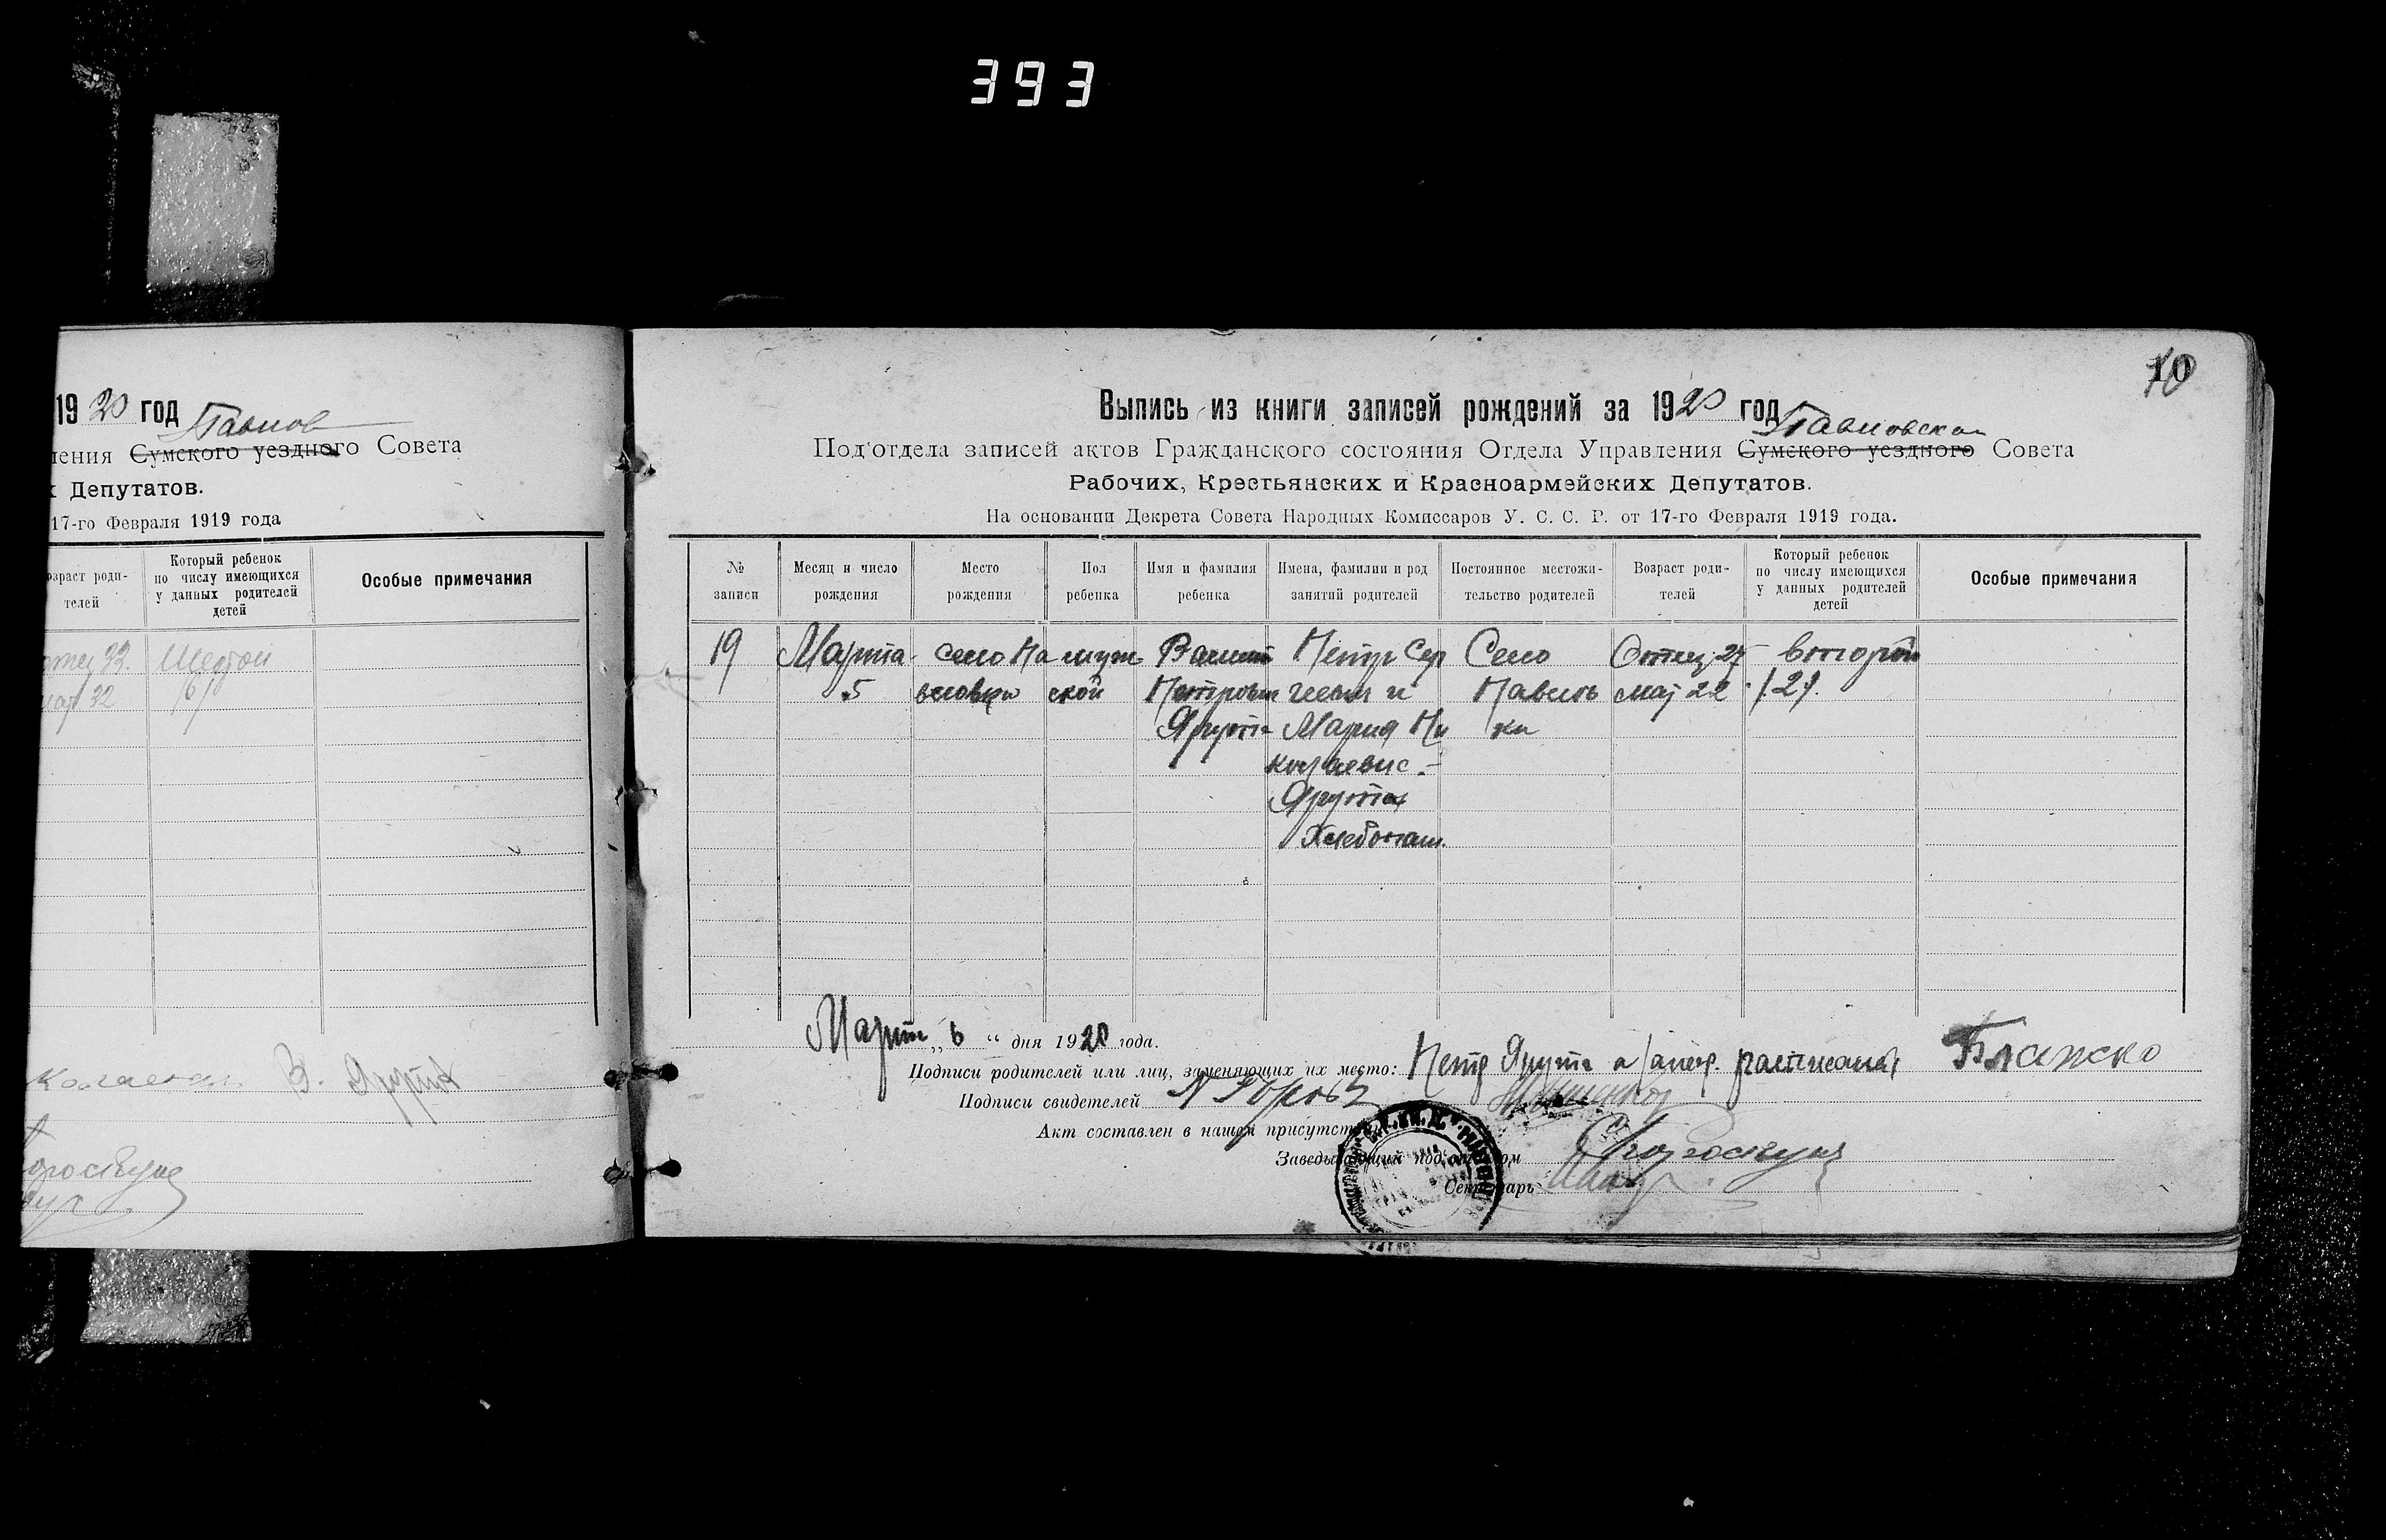 393
1920 год
Павлов
ления Сумского уездного Совета
х Депутатов.
17-го Февраля 1919 года
озраст роди-
телей
Который ребенок
по числу имеющихся
у данных родителей
детей
Особые примечания
отец 32. Шестой
мат 32 /6/
В. Ярута
10
Выпись из книги записей рождений за 1920 год
Павловскаго
Под'отдела записей актов Гражданского состояния Отдела Управления Сумского уездного Совета
Рабочих, Крестьянских и Красноармейских Депутатов.
На основании Декрета Совета Народных Комиссаров У. С. С. Р. от 17-го Февраля 1919 года.
№
записи
Месяц и число
рождения
Место
рождения
Пол
ребенка
Имя и фамилия
ребенка
Имена, фамилии и род
занятий родителей
Постоянное местожи-
тельство родителей
Возраст роди-
телей
Который ребенок
по числу имеющихся
у данных родителей
детей
Особые примечания
19 Марта село Па муж Петр Сер Село Отец 27 второй
5 вловки ской Петрович геевич и Павлов мат 22 /2/.
Ярута Мария Ни ки
колаевна
Ярута
Хлебопаш.
Марта „ 6 “ дня 1920 года.
Подписи родителей или лиц, заменяющих их место: Петр Ярута а расписался
Подписи свидетелей
Акт составлен в нашем присутствии
Заведывающий под'отделом
Секретарь